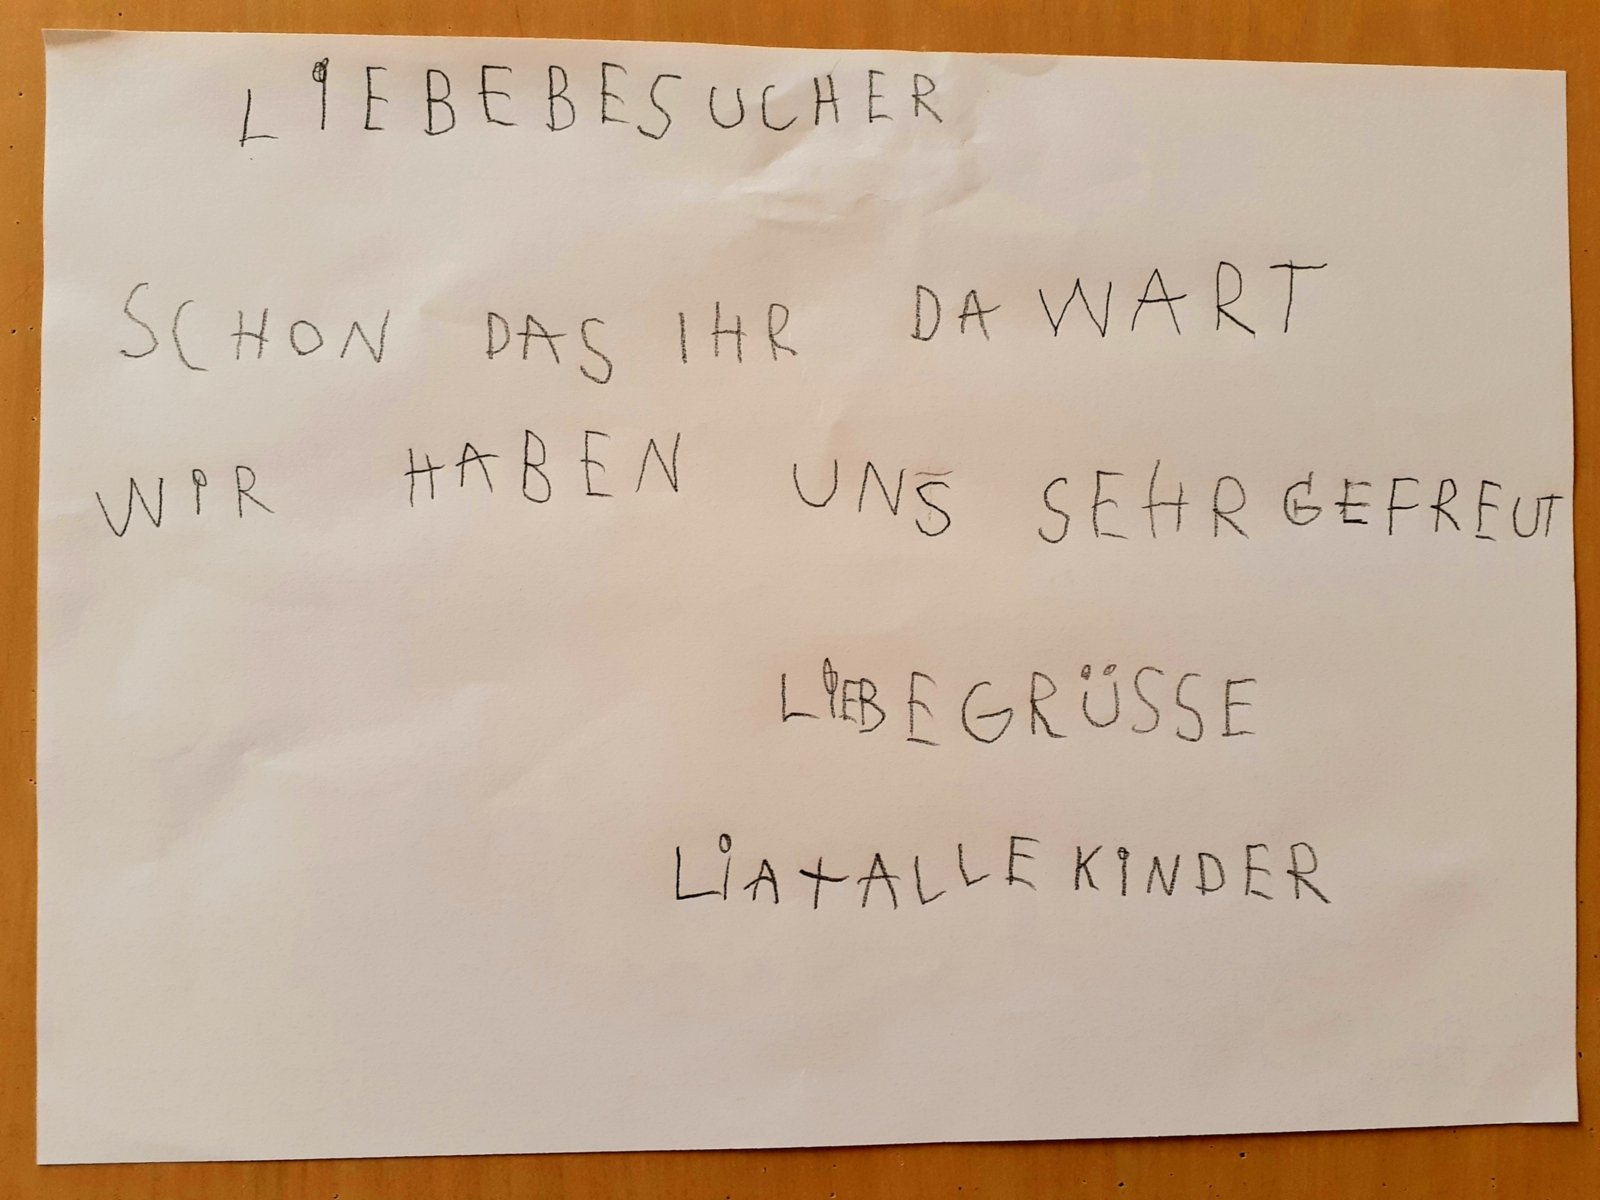 LIEBEBESUCHER
SCHON DAS IHR DA WART
WIR HABEN UNS SEHR GEFREUT
LIEBE GRÜSSE
LIA+ALLE KINDER